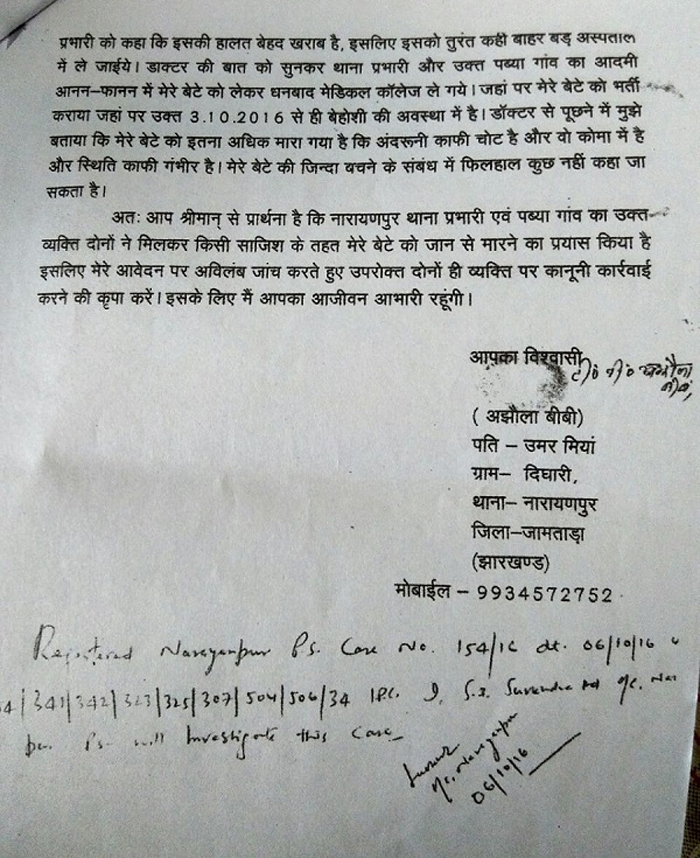 प्रभारी को कहा कि इसकी हालत बेहद खराब है, इसलिए इसको तुरंत कही बाहर बड़े अस्पताल
में ले जाईये। डाक्टर की बात को सुनकर थाना प्रभारी और उक्त पब्या गांव का आदमी
आनन–फानन में मेरे बेटे को लेकर धनबाद मेडिकल कॉलेज ले गये। जहां पर मेरे बेटे को भर्ती
कराया जहां पर उक्त 3.10.2016 से ही बेहोशी की अवस्था में है। डॉक्टर से पूछने में मुझे
बताया कि मेरे बेटे को इतना अधिक मारा गया है कि अंदरूनी काफी चोट है और वो कोमा में है
और स्थिति काफी गंभीर है। मेरे बेटे की जिन्दा बचने के संबंध में फिलहाल कुछ नहीं कहा जा
सकता है।
अतः आप श्रीमान् से प्रार्थना है कि नारायणपुर थाना प्रभारी एवं पब्या गांव का उक्त
व्यक्ति दोनों ने मिलकर किसी साजिश के तहत मेरे बेटे को जान से मारने का प्रयास किया है
इसलिए मेरे आवेदन पर अविलंब जांच करते हुए उपरोक्त दोनों ही व्यक्ति पर कानूनी कार्रवाई
करने की कृपा करें। इसके लिए मैं आपका आजीवन आभारी रहूंगी।
आपका विश्वासी
( अझौला बीबी)
पति – उमर मियां
ग्राम– दिघारी,
थाना– नारायणपुर
जिला–जामताड़ा
(झारखण्ड)
मोबाईल – 9934572752
Registered Narayanpur P.S. Case No. 154/16 dt. 06/10/16 u
4/341/342/323/325/307/504/506/34 I.P.C. I, S.I. Surendra
P.S. will Investigate this Case
O/c. Narayanpur
06/10/16